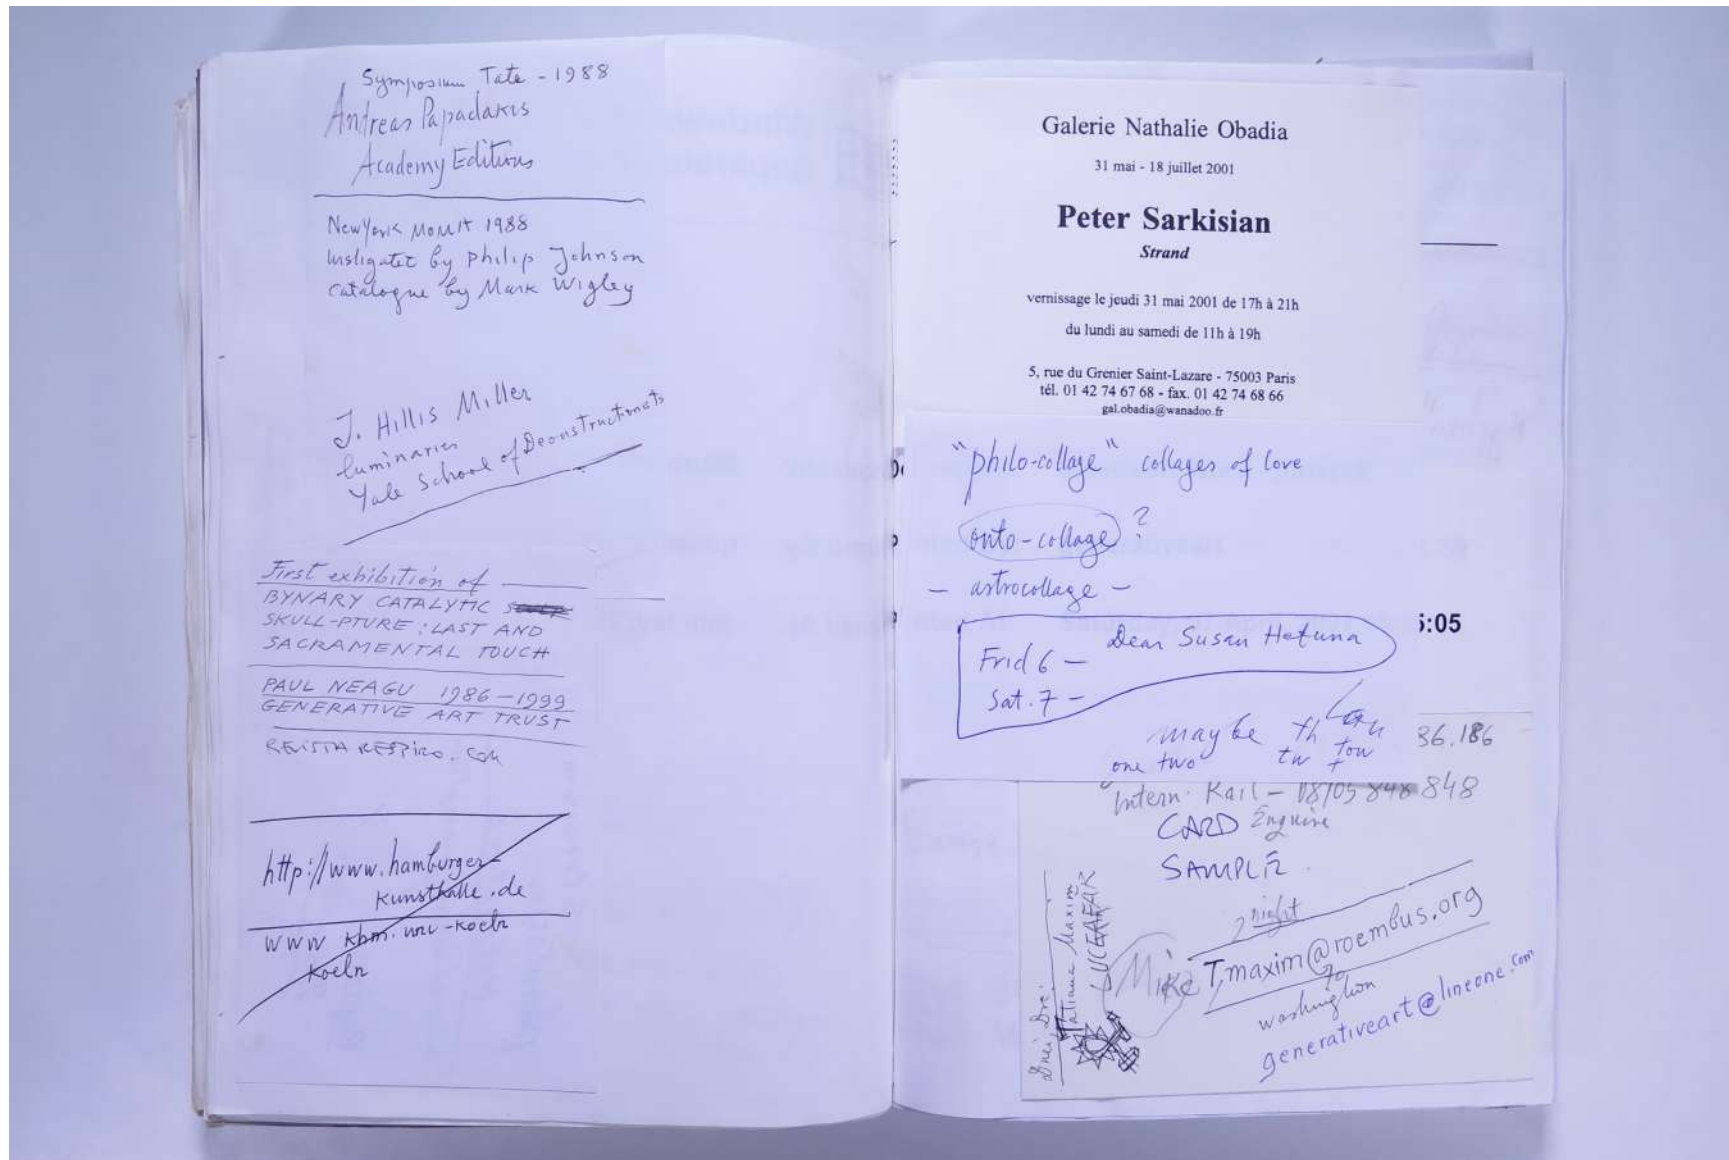 Symposium Tate - 1988
Andreas Papadakis
Academy Editions
New York MOMA 1988
instigated by Philip Johnson
catalogue by Mark Wigley
J. Hillis Miller
luminaries
Yale School of Deonstructionists
First exhibition of
BYNARY CATALYTIC
SKULL-PTURE : LAST AND
SACRAMENTAL TOUCH
PAUL NEAGU 1986-1999
GENERATIVE ART TRUST
REVISTA RESPIRO. COM
http://www.hamburger-
kunsthalle.de
www khm. -koeln
koeln
Galerie Nathalie Obadia
31 mai - 18 juillet 2001
Peter Sarkisian
Strand
vernissage le jeudi 31 mai 2001 de 17h à 21h
du lundi au samedi de 11h à 19h
5, rue du Grenier Saint-Lazare - 75003 Paris
tél. 01 42 74 67 68 - fax. 01 42 74 68 66
gal.obadia@wanadoo.fr
"philo-collage" collages of love
onto-collage ?
- astrocollage -
5:05
Dear Susan Hefuna
Frid 6 -
Sat. 7 -
maybe th
one two tw
36.186
Intern. Rail - 08705 848 848
CARD Enquire
SAMPLE
night
Mike T,maxim@roembus.org
washington
generativeart@lineone.com
Tatiana Maxim
LUCEAFAR